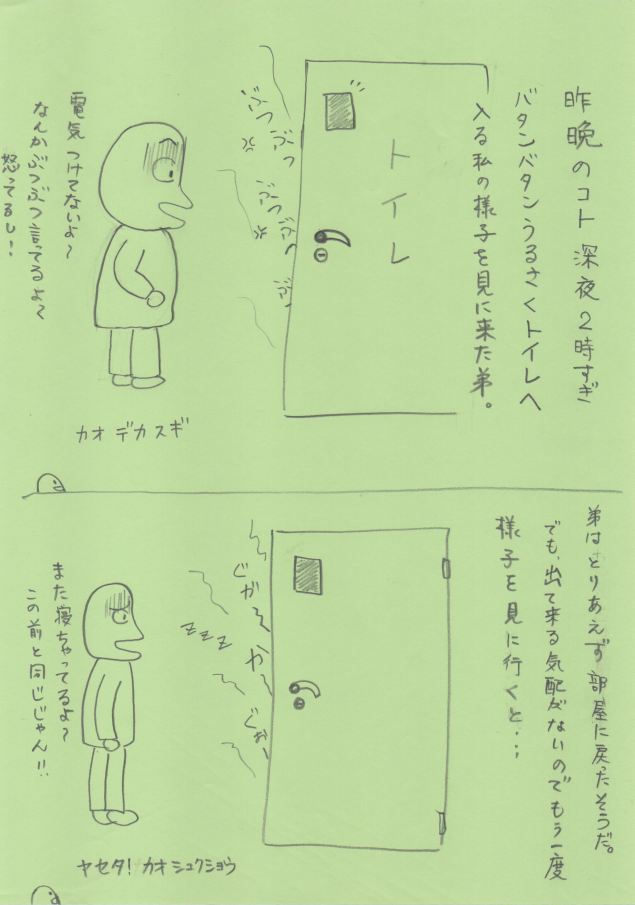 昨晩のコト 深夜2時すぎ
バタンバタンうるさくトイレへ
入る私の様子を見に来た弟。
トイレ
ぶつ
ぶつ
ぶつぶつ
ぶつ
電気つけてないよ〜
なんかぶつぶつ言ってるよ〜
怒ってるし!
カオデカスギ
弟はとりあえず部屋に戻ったそうだ。
でも、出て来る気配がないのでもう一度
様子を見に行くと・・
ぐが
が
ぐぉ
ZZZZ
また寝ちゃってるよ〜
この前と同じじゃん!!
ヤセタ!カオシュクショウ